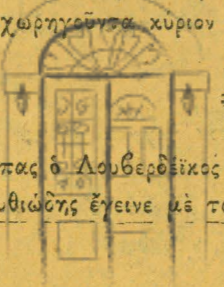 χωρηγοῦντα κύριον
πας ὁ Λουβερδέϊκος
θιώδης ἔγεινε μὲ τ